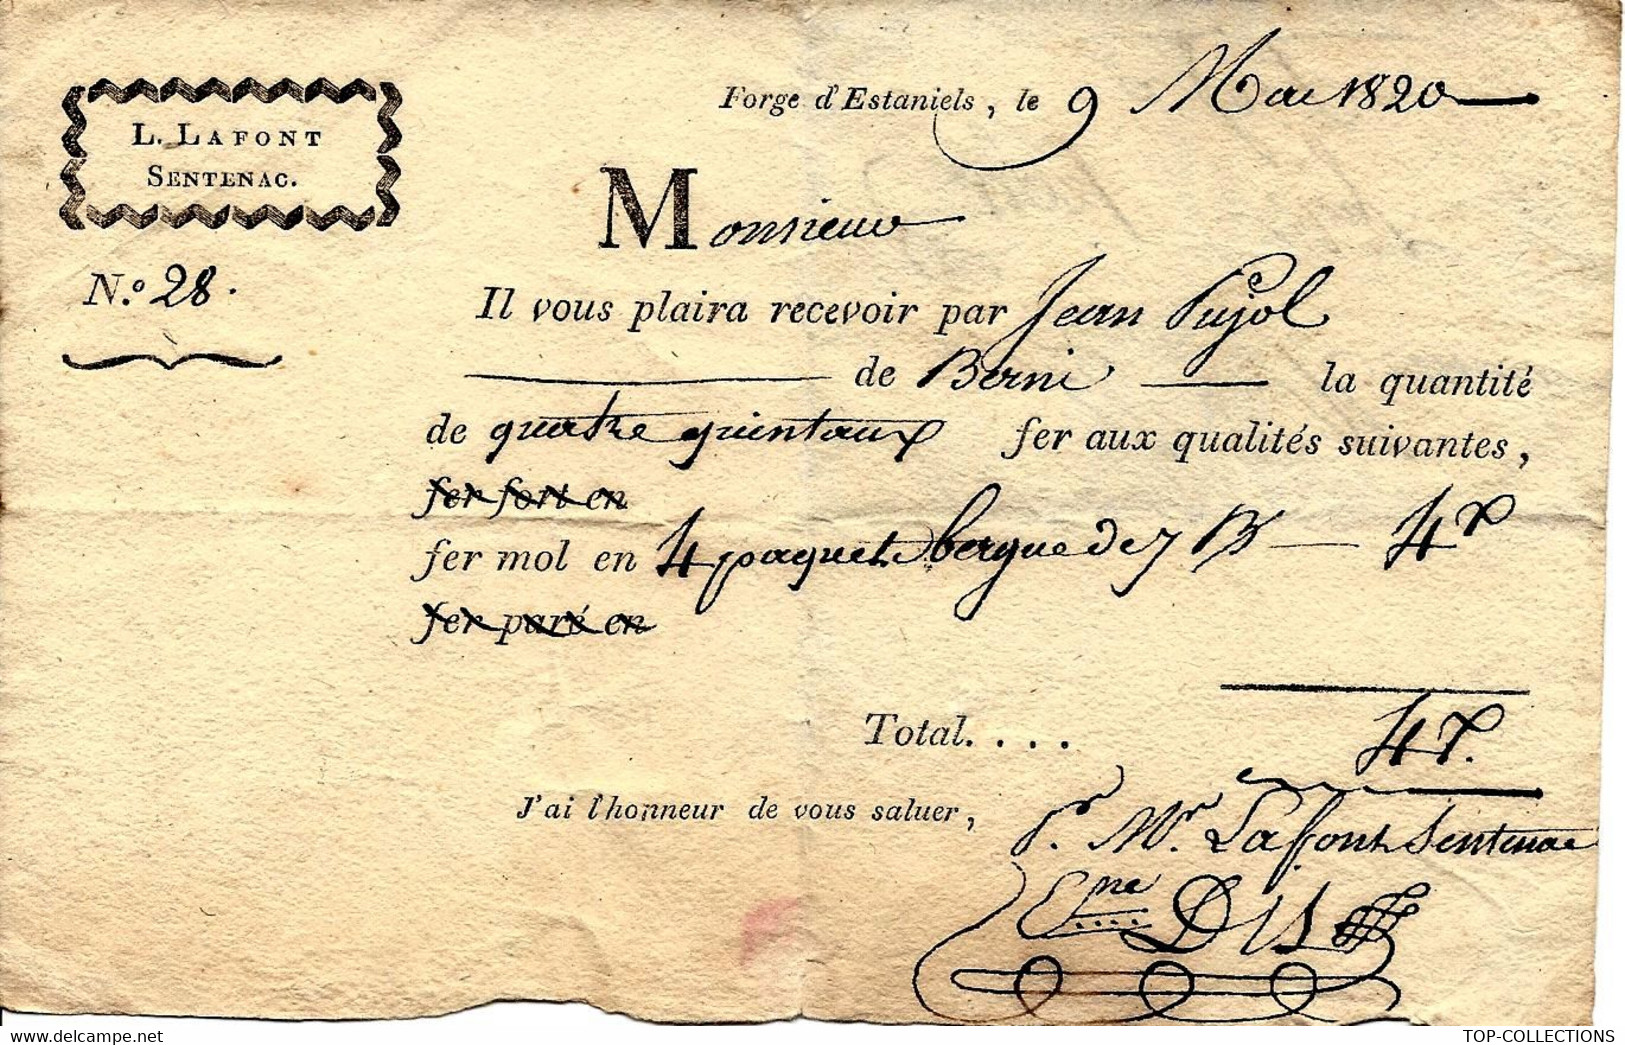 L. LAFONT
SENTENAC.
N.º 28.
Forge d'Estaniels, le 9 Mai 1820
Monsieur
Il vous plaira recevoir par Jean Pujol
de Berni la quantité
de quatre quintaux fer aux qualités suivantes,
fer fort en
fer mol en 4 paquets bergue de 7 B 4 q
fer paré en
Total. . . . 4 q.
J'ai l'honneur de vous saluer,
P.r Mr. Lafont Sentenac
www.delcampe.net
TOP-COLLECTIONS